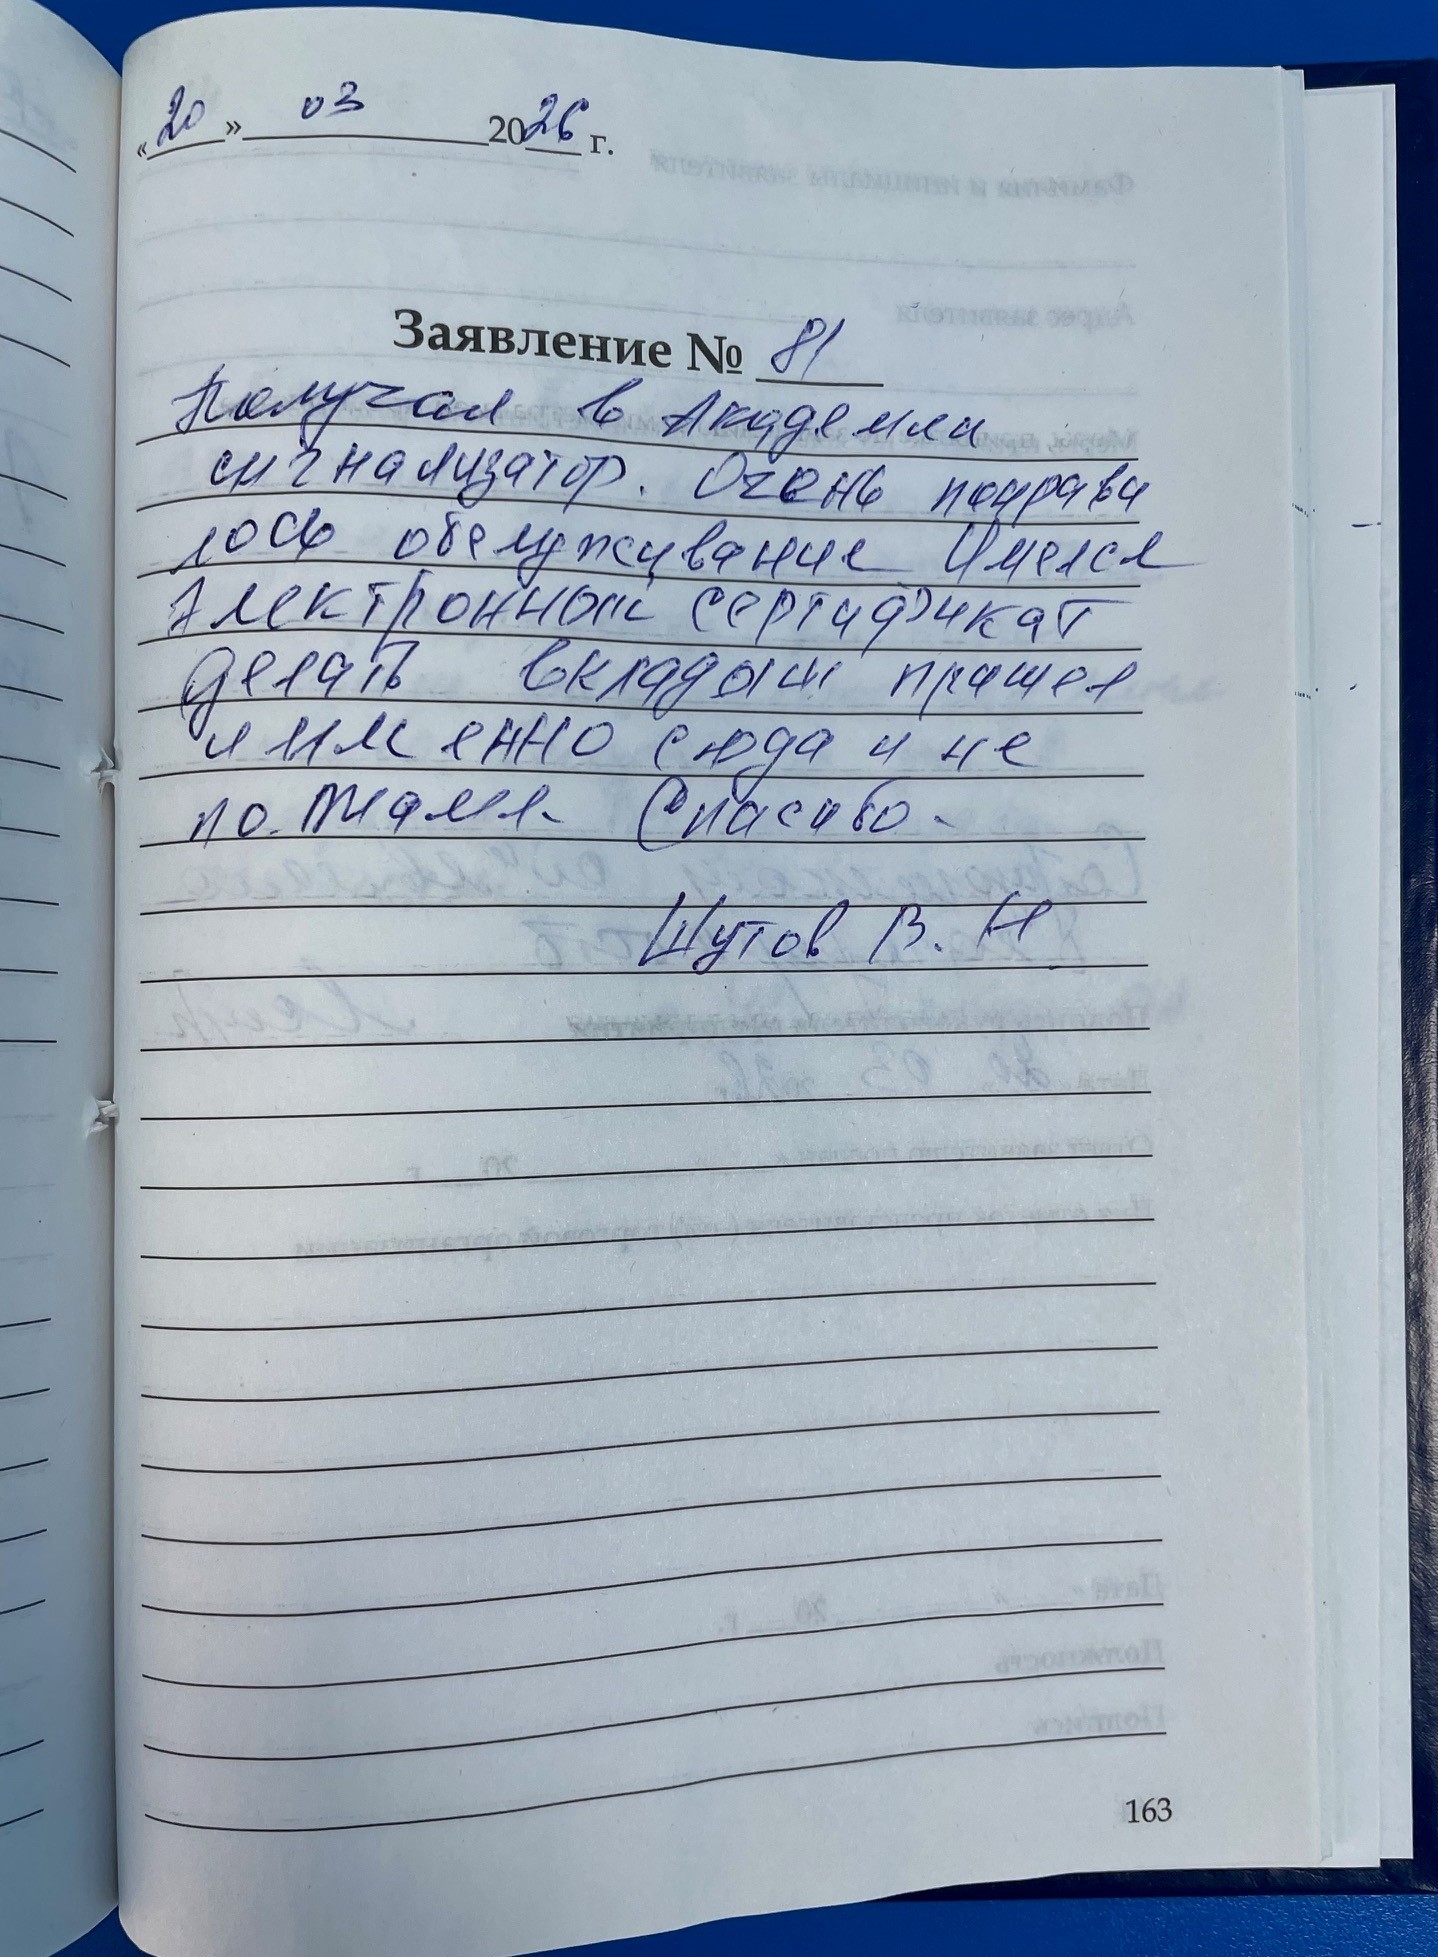 «20» 03 2026 г.
Заявление № 81
Получал в Академии
сигнализатор. Очень понрави
лось обслуживание Имелся
Электронный сертификат
делать вкладыш пришел
именно сюда и не
по жалел. Спасибо.
Шутов В. Н
163